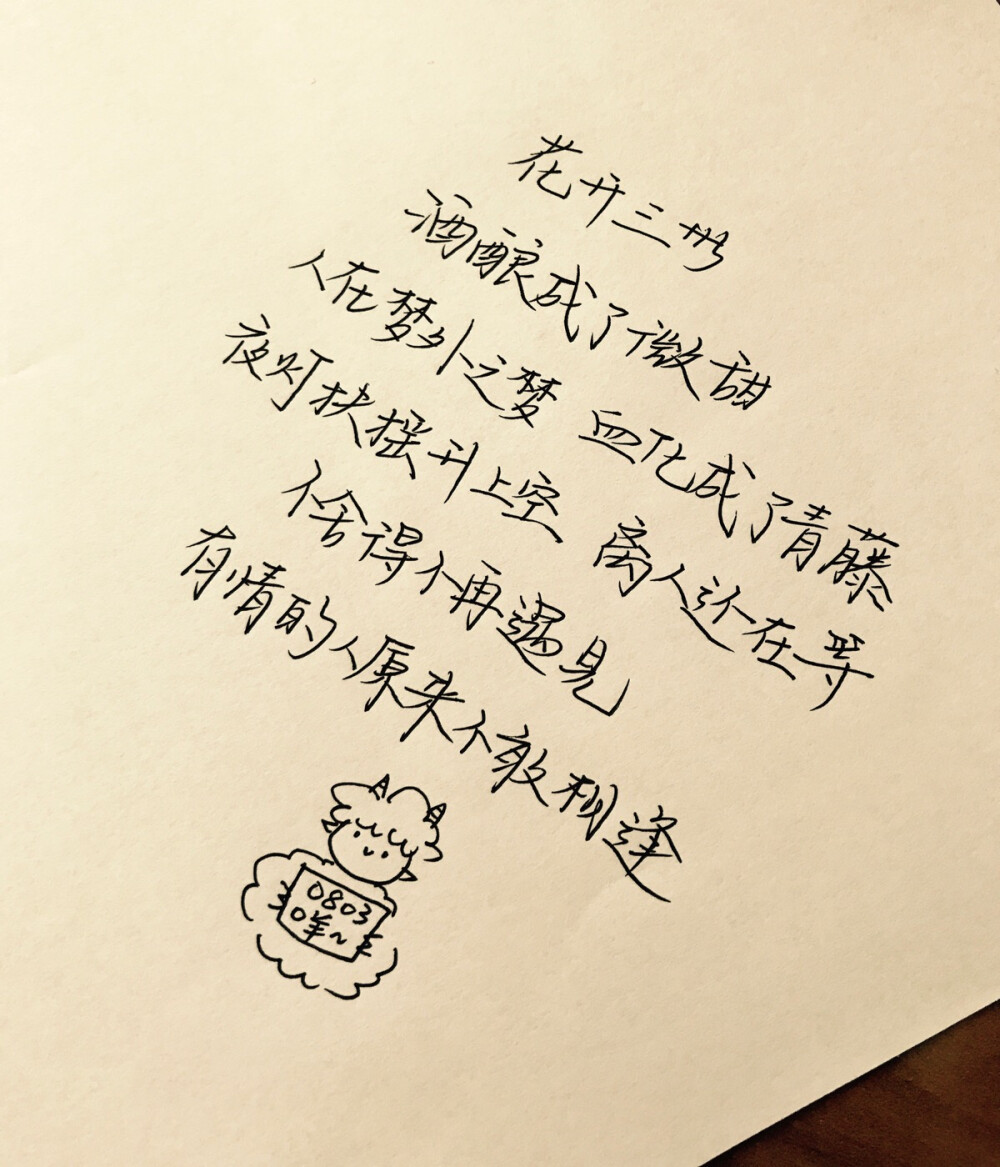 花开三世
酒酿成了微甜
人在梦外之梦 血化成了青藤
夜灯扶摇升上空 离人还在等
不舍得不再遇见
有情的人原来不敢相逢
0803
咩~